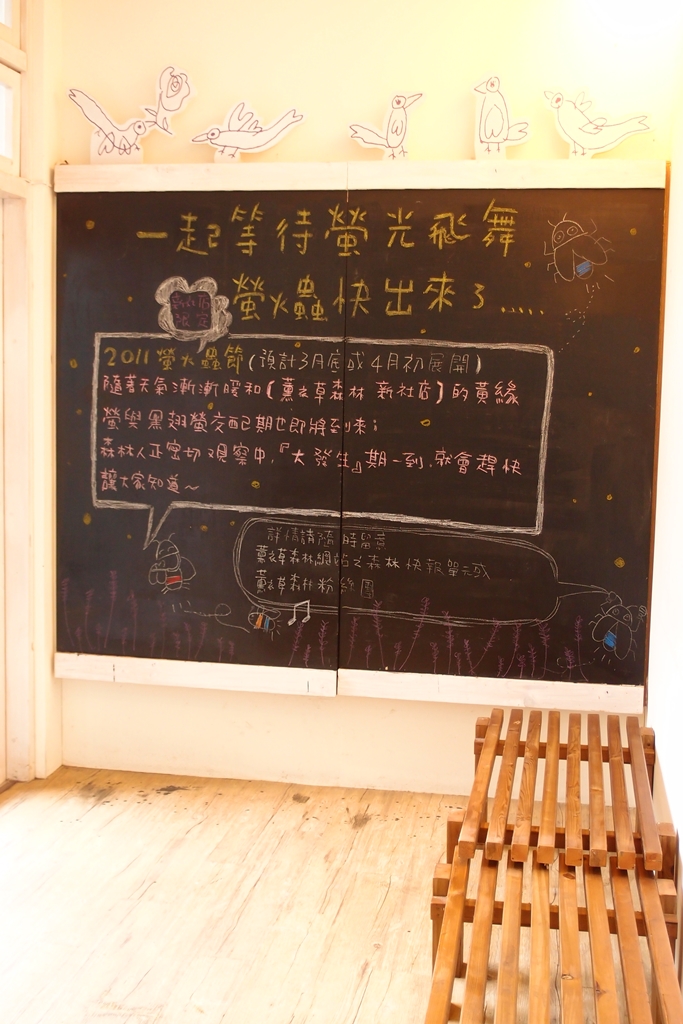 一起等待螢光飛舞
螢火蟲快出來了.....
新社店
限定
2011螢火蟲節(預計3月底或4月初展開)
隨著天氣漸漸暖和(薰衣草森林 新社店)的黃緣
螢與黑翅螢交配期也即將到來;
森林人正密切觀察中,『大發生』期一到,就會趕快
讓大家知道~
詳情請隨時留意
薰衣草森林網站之森林快報單元或
薰衣草森林粉絲團